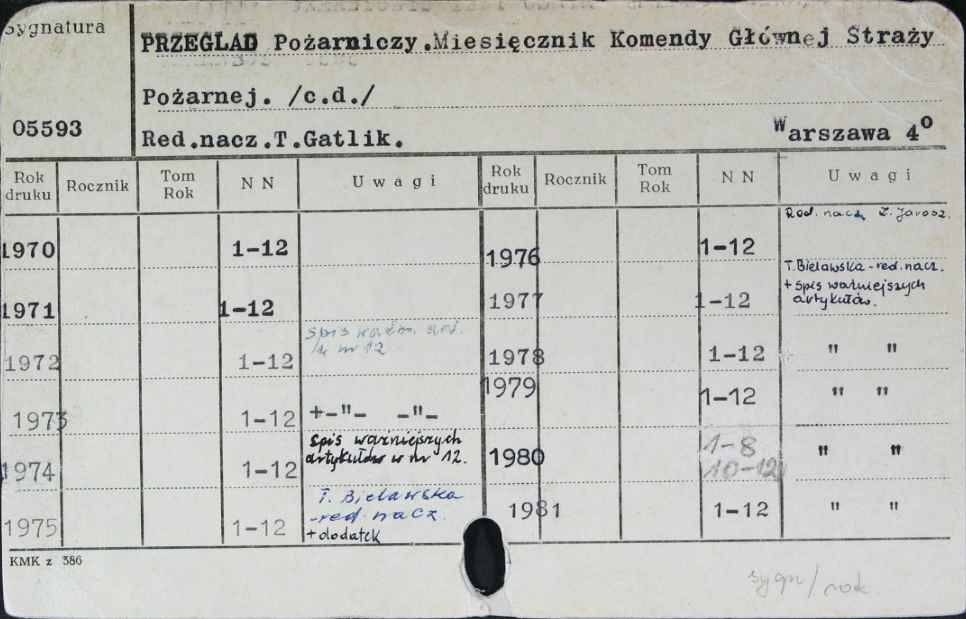 Sygnatura
PRZEGLAD Pożarniczy.Miesięcznik Komendy Głównej Straży
Pożarnej. /c.d./
05593
Red.nacz.T.Gatlik. Warszawa 4º
Rok druku Rocznik Tom Rok N N Uwagi Rok druku Rocznik Tom Rok N N Uwagi
1970 1-12
1976 1-12 Red. nacz. Z. Jarosz.
1971 1-12
1977 1-12 T. Bielawska - red. nacz.
+ spis ważniejszych
artykułów.
1972 1-12 spis
w nr 12
1978 1-12 " "
1973 1-12 +-"- -"-
1979 1-12 " "
1974 1-12 spis ważniejszych
artykułów w nr 12.
1980 1-8
10-12 " "
1975 1-12 T. Bielawska
-red. nacz.
+ dodatek
1981 1-12 " "
KMK z 386
sygn/rok